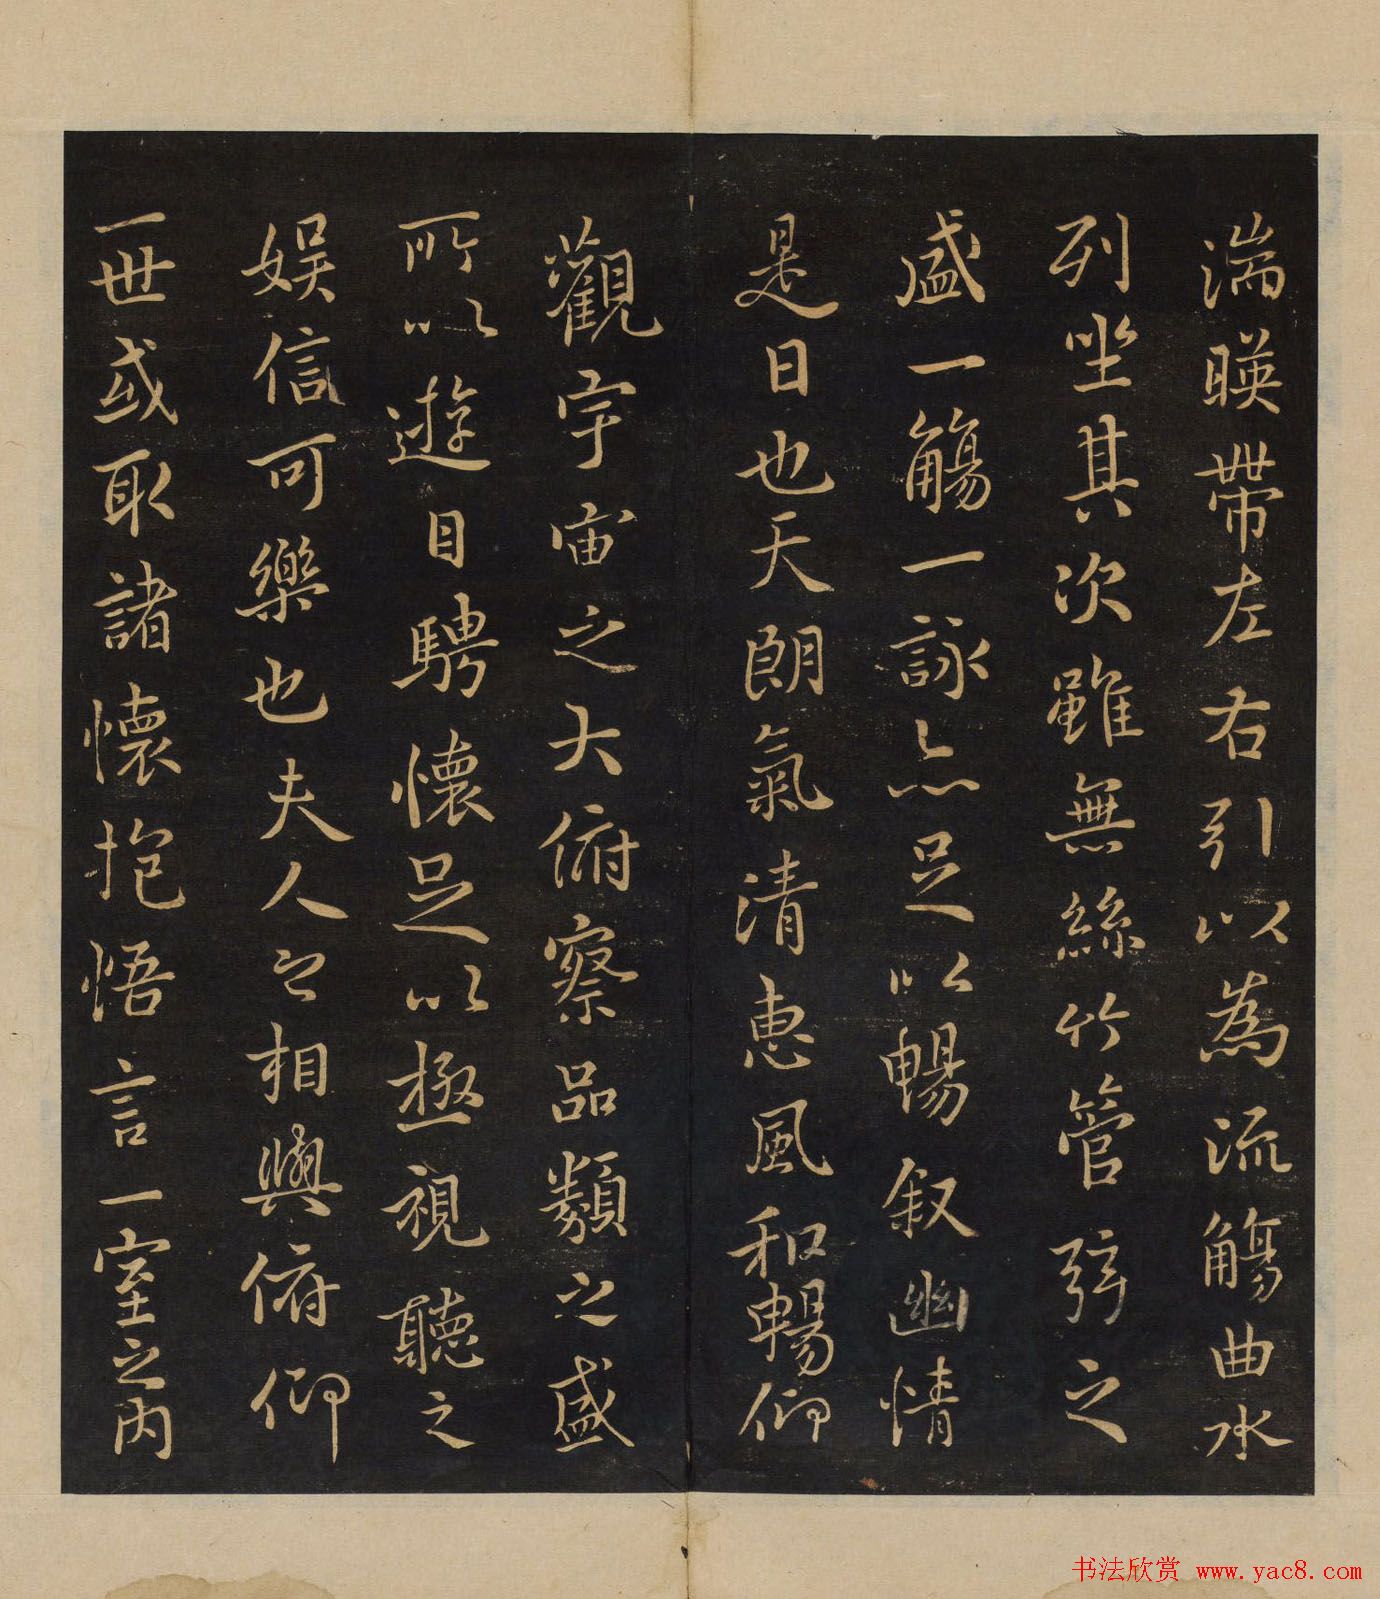 湍暎帶左右引以為流觴曲水
列坐其次雖無絲竹管弦之
盛一觴一詠亦足以暢叙幽情
是日也天朗氣清惠風和暢仰
觀宇宙之大俯察品類之盛
所以遊目騁懷足以極視聽之
娛信可樂也夫人之相與俯仰
一世或取諸懷抱悟言一室之內
书法欣赏 www.yac8.com